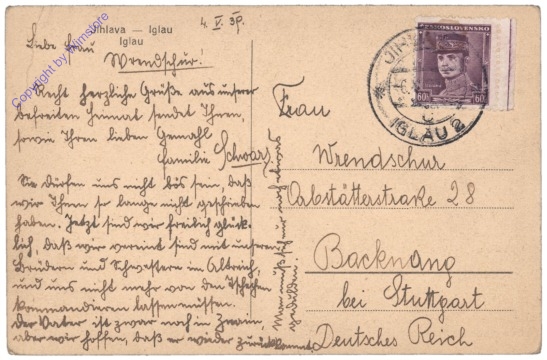 Jihlava — Iglau
Iglau
4. V. 39.
Liebe Frau
Wrendschur!
Recht herzliche Grüße aus unserer
befreiten Heimat sendet Ihnen,
sowie Ihren lieben Gemahl
Familie Schwarz
Sie dürfen uns nicht bös sein, daß
wir Ihnen so lange nicht geschrieben
haben. Jetzt sind wir freilich glück-
lich, daß wir vereint sind mit unseren
Brüdern und Schwestern im Altreich,
und uns nicht mehr von den Tschechen
kommandieren lassen müssen.
Der Vater ist zwar noch in
aber wir hoffen, daß er wieder zurück kommt.
Man muß sich nur noch etwas
gedulden.
Frau
Wrendschur
Backnang
bei Stuttgart
Deutsches Reich
28
ČESKOSLOVENSKO
60 60
IGLAU 2
Copyright by Wimstore